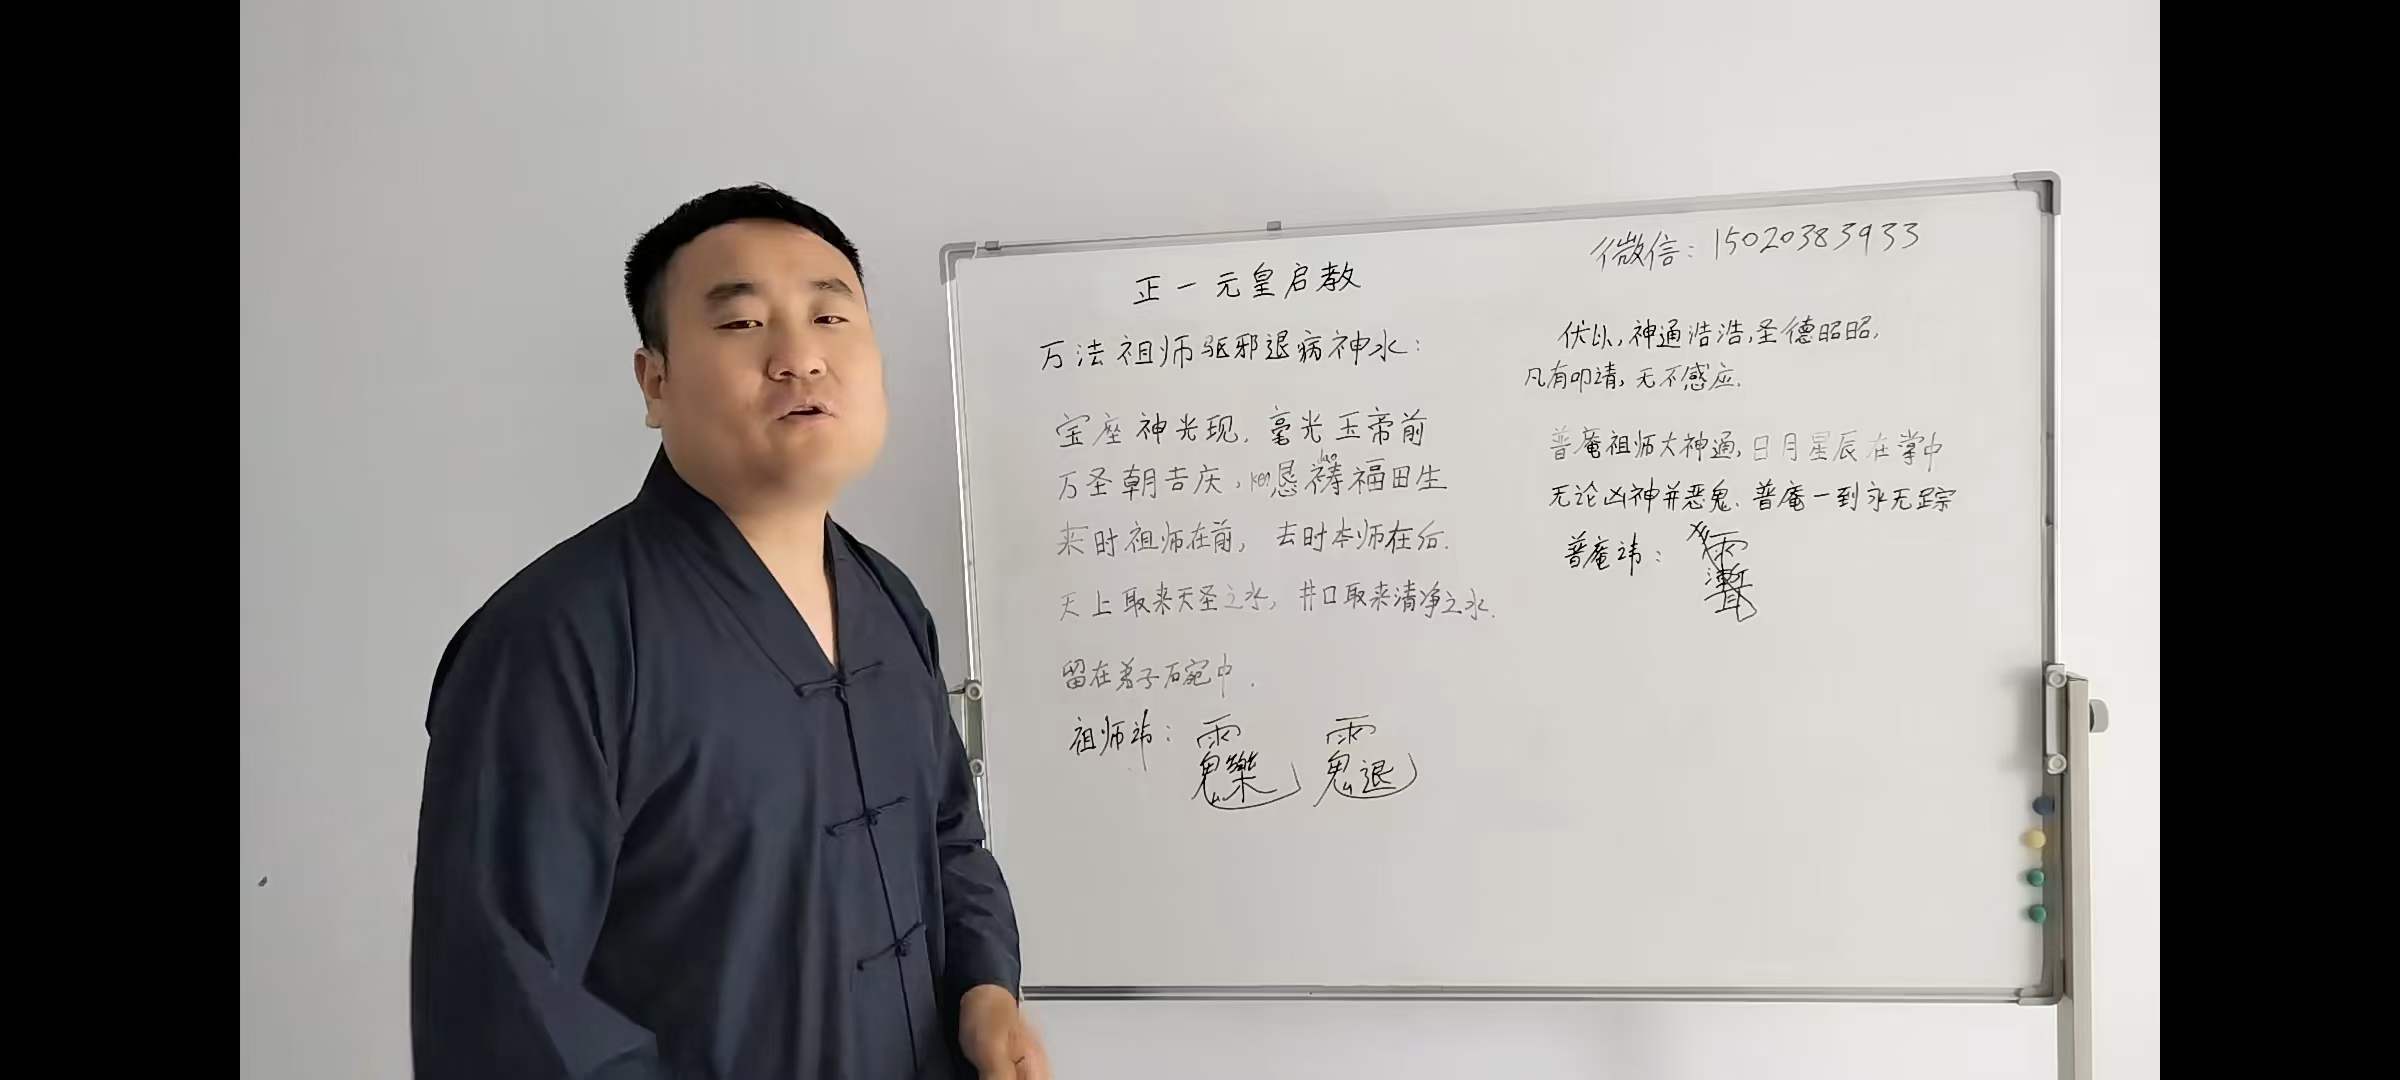 正一元皇启教
万法祖师驱邪退病神水：
宝座神光现，毫光玉帝前
万圣朝吉庆，ken恳祷福田生
来时祖师在前，去时本师在后.
天上取来天圣之水，井口取来清净之水.
留在弟子石宛中.
祖师讳：
微信：15020383933
伏以，神通浩浩，圣德昭昭，
凡有叩请，无不感应.
普庵祖师大神通，日月星辰在掌中
无论凶神并恶鬼.普庵一到永无踪
普庵讳：